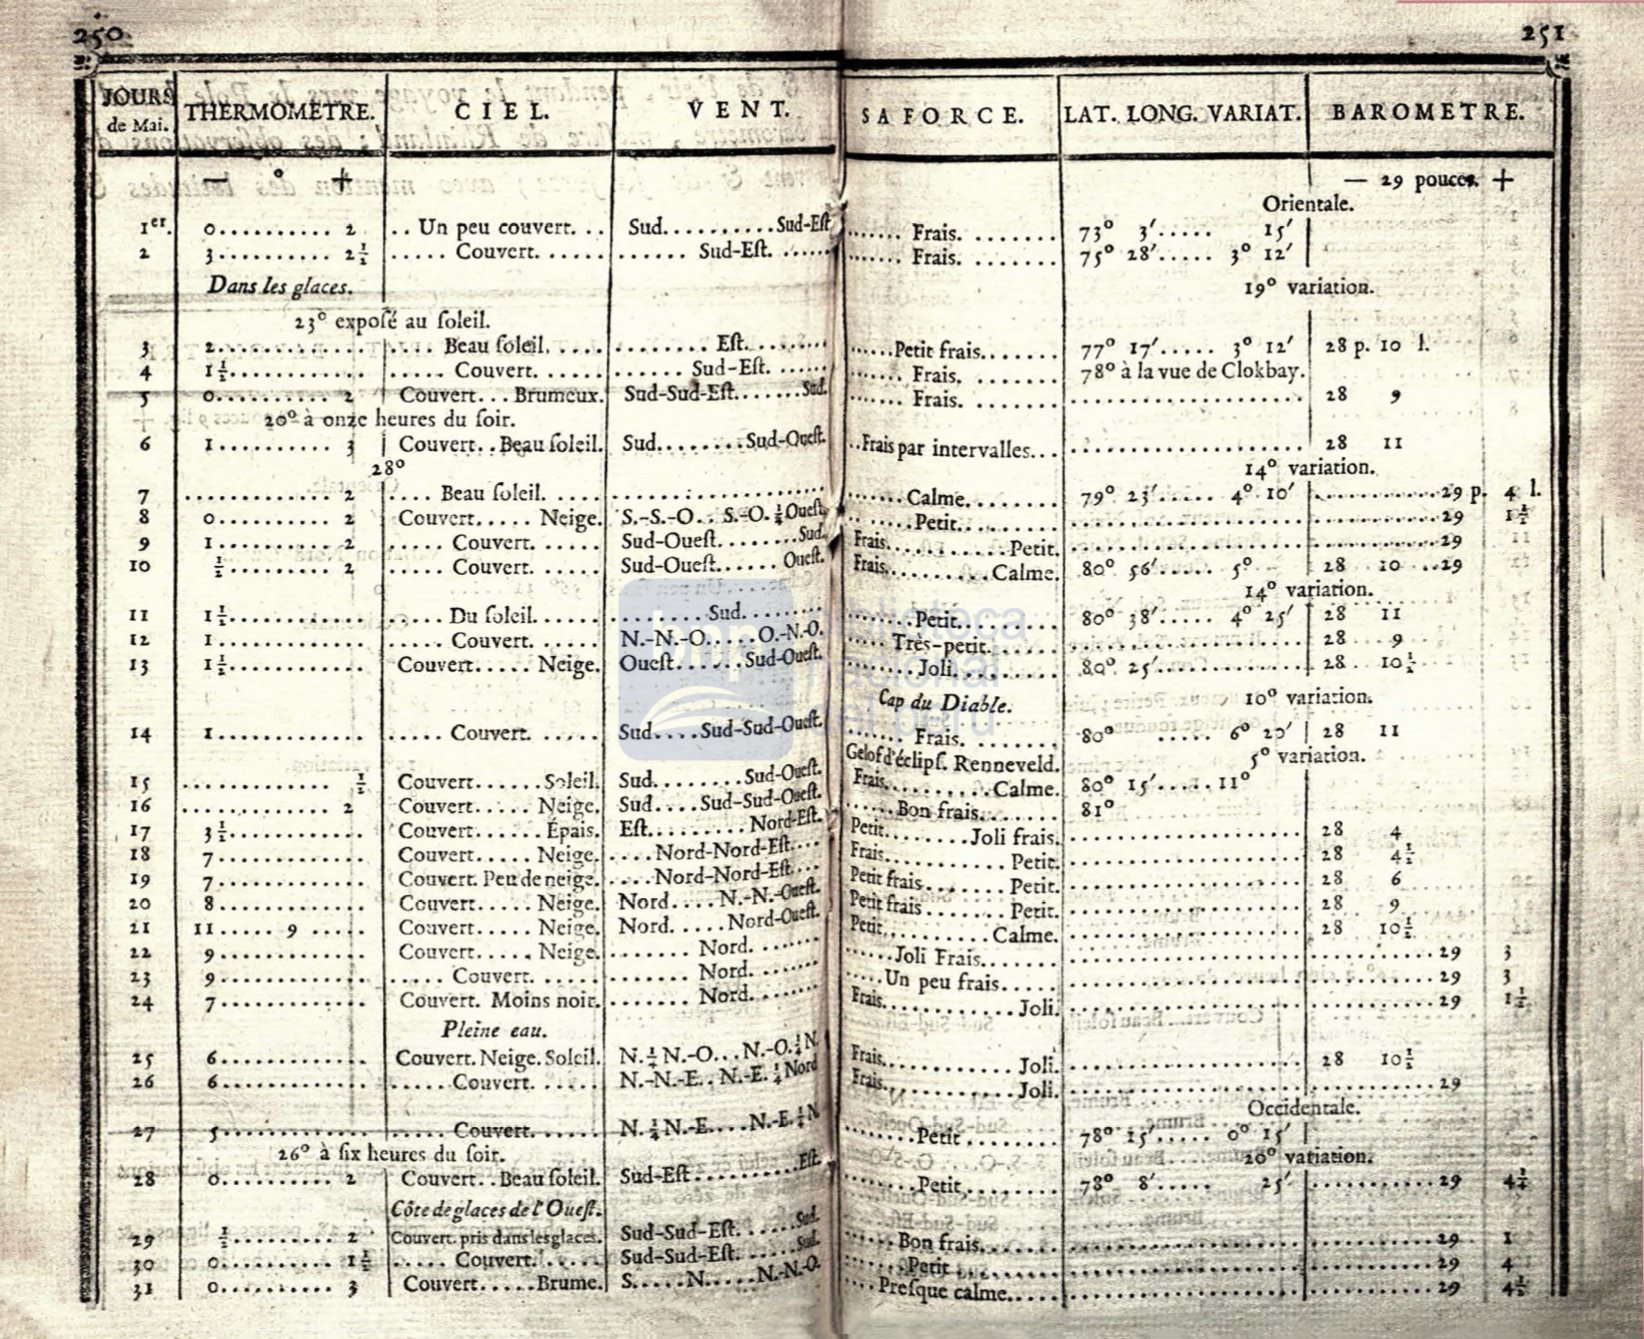 250
251
JOURS de Mai. THERMOMETRE. CIEL. VENT. SA FORCE. LAT. LONG. VARIAT. BAROMETRE.
— ° + — 29 pouces. +
Orientale.
1er. 0.......... 2 .. Un peu couvert. .. Sud..........Sud-Eſt ....... Frais. ....... 73° 3′..... 15′
2 3.......... 2½ ..... Couvert. ...... ...... Sud-Eſt. ...... ....... Frais. ....... 75° 28′..... 3° 12′
Dans les glaces. 19° variation.
23° expoſé au ſoleil.
3 2.............. .... Beau ſoleil. .... ........ Eſt. ....... ......Petit frais....... 77° 17′..... 3° 12′ 28 p. 10 l.
4 1½............. ..... Couvert. ...... ...... Sud-Eſt. ...... ....... Frais. ....... 78° à la vue de Clokbay.
5 0.......... 2 Couvert... Brumeux. Sud-Sud-Eſt.......Sud. ....... Frais. ....... .................... 28 9
20° à onze heures du ſoir.
6 1.......... 3 Couvert..Beau ſoleil. Sud........Sud-Oueſt. ..Frais par intervalles... .................... 28 11
28° 14° variation.
7 ............. 2 .... Beau ſoleil. .... .................. ....... Calme......... 79° 23′...... 4° 10′ .............29 p. 4 l.
8 0.......... 2 Couvert..... Neige. S.-S.-O.. S.-O. ¼ Oueſt. .......Petit......... .................... .............29 1½
9 1.......... 2 ..... Couvert. ...... Sud-Oueſt........Sud. Frais...........Petit. .................... .............29
10 ½......... 2 ..... Couvert. ...... Sud-Oueſt...... Oueſt. Frais..........Calme. 80° 56′...... 5° 28 10 ..29
14° variation.
11 1½............. ..... Du ſoleil. ...... .........Sud......... .......Petit......... 80° 38′...... 4° 25′ 28 11
12 1.............. ..... Couvert. ...... N.-N.-O......O.-N.-O. ..... Très-petit....... .................... 28 9
13 1½............. Couvert..... Neige. Oueſt.......Sud-Oueſt. ....... Joli.......... 80° 25′............ 28 10½
Cap du Diable. 10° variation.
14 1.............. ..... Couvert. ..... Sud....Sud-Sud-Oueſt. ....... Frais. ....... 80° ..... 6° 20′ 28 11
Gelof d'éclipſ. Renneveld. 5° variation.
15 ............. ½ Couvert......Soleil. Sud........Sud-Oueſt. Frais..........Calme. 80° 15′......11°
16 ............. 2 Couvert..... Neige. Sud....Sud-Sud-Oueſt. .....Bon frais....... 81°
17 3½............. Couvert...... Épais. Eſt......... Nord-Eſt. Petit........Joli frais. .................... 28 4
18 7.............. Couvert..... Neige. ....Nord-Nord-Eſt.... Frais...........Petit. .................... 28 4½
19 7.............. Couvert. Peu de neige. ....Nord-Nord-Eſt.... Petit frais........ Petit. .................... 28 6
20 8.............. Couvert..... Neige. Nord.... N.-N.-Oueſt. Petit frais ....... Petit. .................... 28 9
21 11..... 9 ..... Couvert..... Neige. Nord..... Nord-Oueſt. Petit..........Calme. .................... 28 10½
22 9.............. Couvert..... Neige. ....... Nord. ....... .....Joli Frais....... .................... .............29 3
23 9.............. ..... Couvert. ...... ....... Nord. ....... .....Un peu frais..... .................... .............29 3
24 7.............. Couvert. Moins noir. ....... Nord. ....... Frais............Joli. .................... .............29 1½
Pleine eau.
25 6.............. Couvert. Neige. Soleil. N.¼ N.-O...N.-O.¼ N. Frais............Joli. .................... 28 10½
26 6.............. .....Couvert. ...... N.-N.-E.. N.-E. ¼ Nord Frais............Joli. .................... .............29
Occidentale.
27 5.............. ..... Couvert. ...... N.¼ N.-E....N.-E.¼ N .......Petit ......... 78° 15′..... 0° 15′
26° à ſix heures du ſoir. 20° variation.
28 0.......... 2 Couvert..Beau ſoleil. Sud-Eſt ..........Eſt. .......Petit......... 78° 8′..... 25′. .............29 4¼
Côte de glaces de l'Oueſt.
29 ½.......... 2 Couvert. pris dans les glaces. Sud-Sud-Eſt. .....Sud. ..... Bon frais....... .................... .............29 1
30 0.......... 1½ ..... Couvert. ...... Sud-Sud-Eſt. .....Sud. ......Petit ......... .................... .............29 4
31 0.......... 3 Couvert.....Brume. S.....N.....N.-N.-O. ....Preſque calme..... .................... .............29 4½
bnp biblioteca nacional del perú